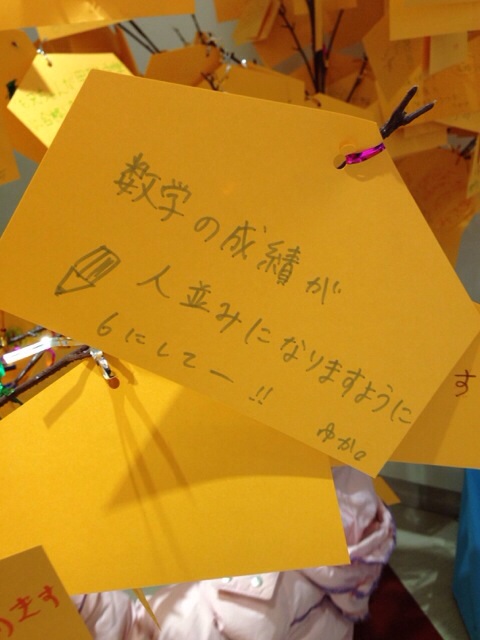 数学の成績が
人並みになりますように
6にしてー!!
ゆか。
す
ります